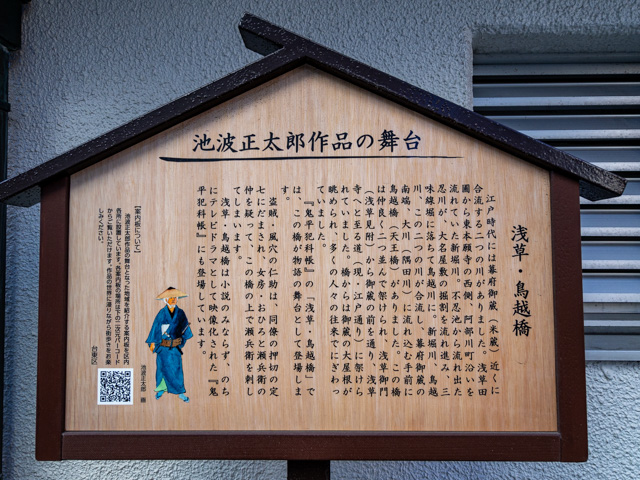 池波正太郎作品の舞台
浅草・鳥越橋
江戸時代には幕府御蔵（米蔵）近くに
合流する二つの川がありました。浅草田
圃から東本願寺の西側、阿部川町沿いを
流れていた新堀川。不忍池から流れ出た
忍川が、大名屋敷の掘割を流れ進み、三
味線堀に落ちて鳥越川に。新堀川、鳥越
川、この二つの川が合流し、幕府御蔵の
南端、大川（隅田川）に流れ込む手前に
鳥越橋（天王橋）がありました。この橋
は仲良く二つ並んで架けられ、浅草御門
（浅草見附）から御蔵の前を通り、浅草
寺へと至る道（現・江戸通り）に架けら
れていました。橋からは御蔵の大屋根が
眺められ、多くの人々の往来でにぎわっ
ていました。
『鬼平犯科帳』の「浅草・鳥越橋」で
は、この橋が物語の舞台として登場しま
す。
盗賊・風穴の仁助は、同僚の押切の定
七にだまされ、女房・おひろと瀬兵衛の
仲を疑って、この橋の上で瀬兵衛を刺し
てしまいます。
浅草・鳥越橋は小説のみならず、のち
にテレビドラマとして映像化された『鬼
平犯科帳』にも登場しています。
池波正太郎 画
【案内板について】
池波正太郎作品の舞台となった地域を紹介する案内板を区内
各所に設置しています。各案内板の場所は下の二次元バーコード
からご覧いただけます。作品の世界に浸りながら街歩きをお楽
しみください。
台東区